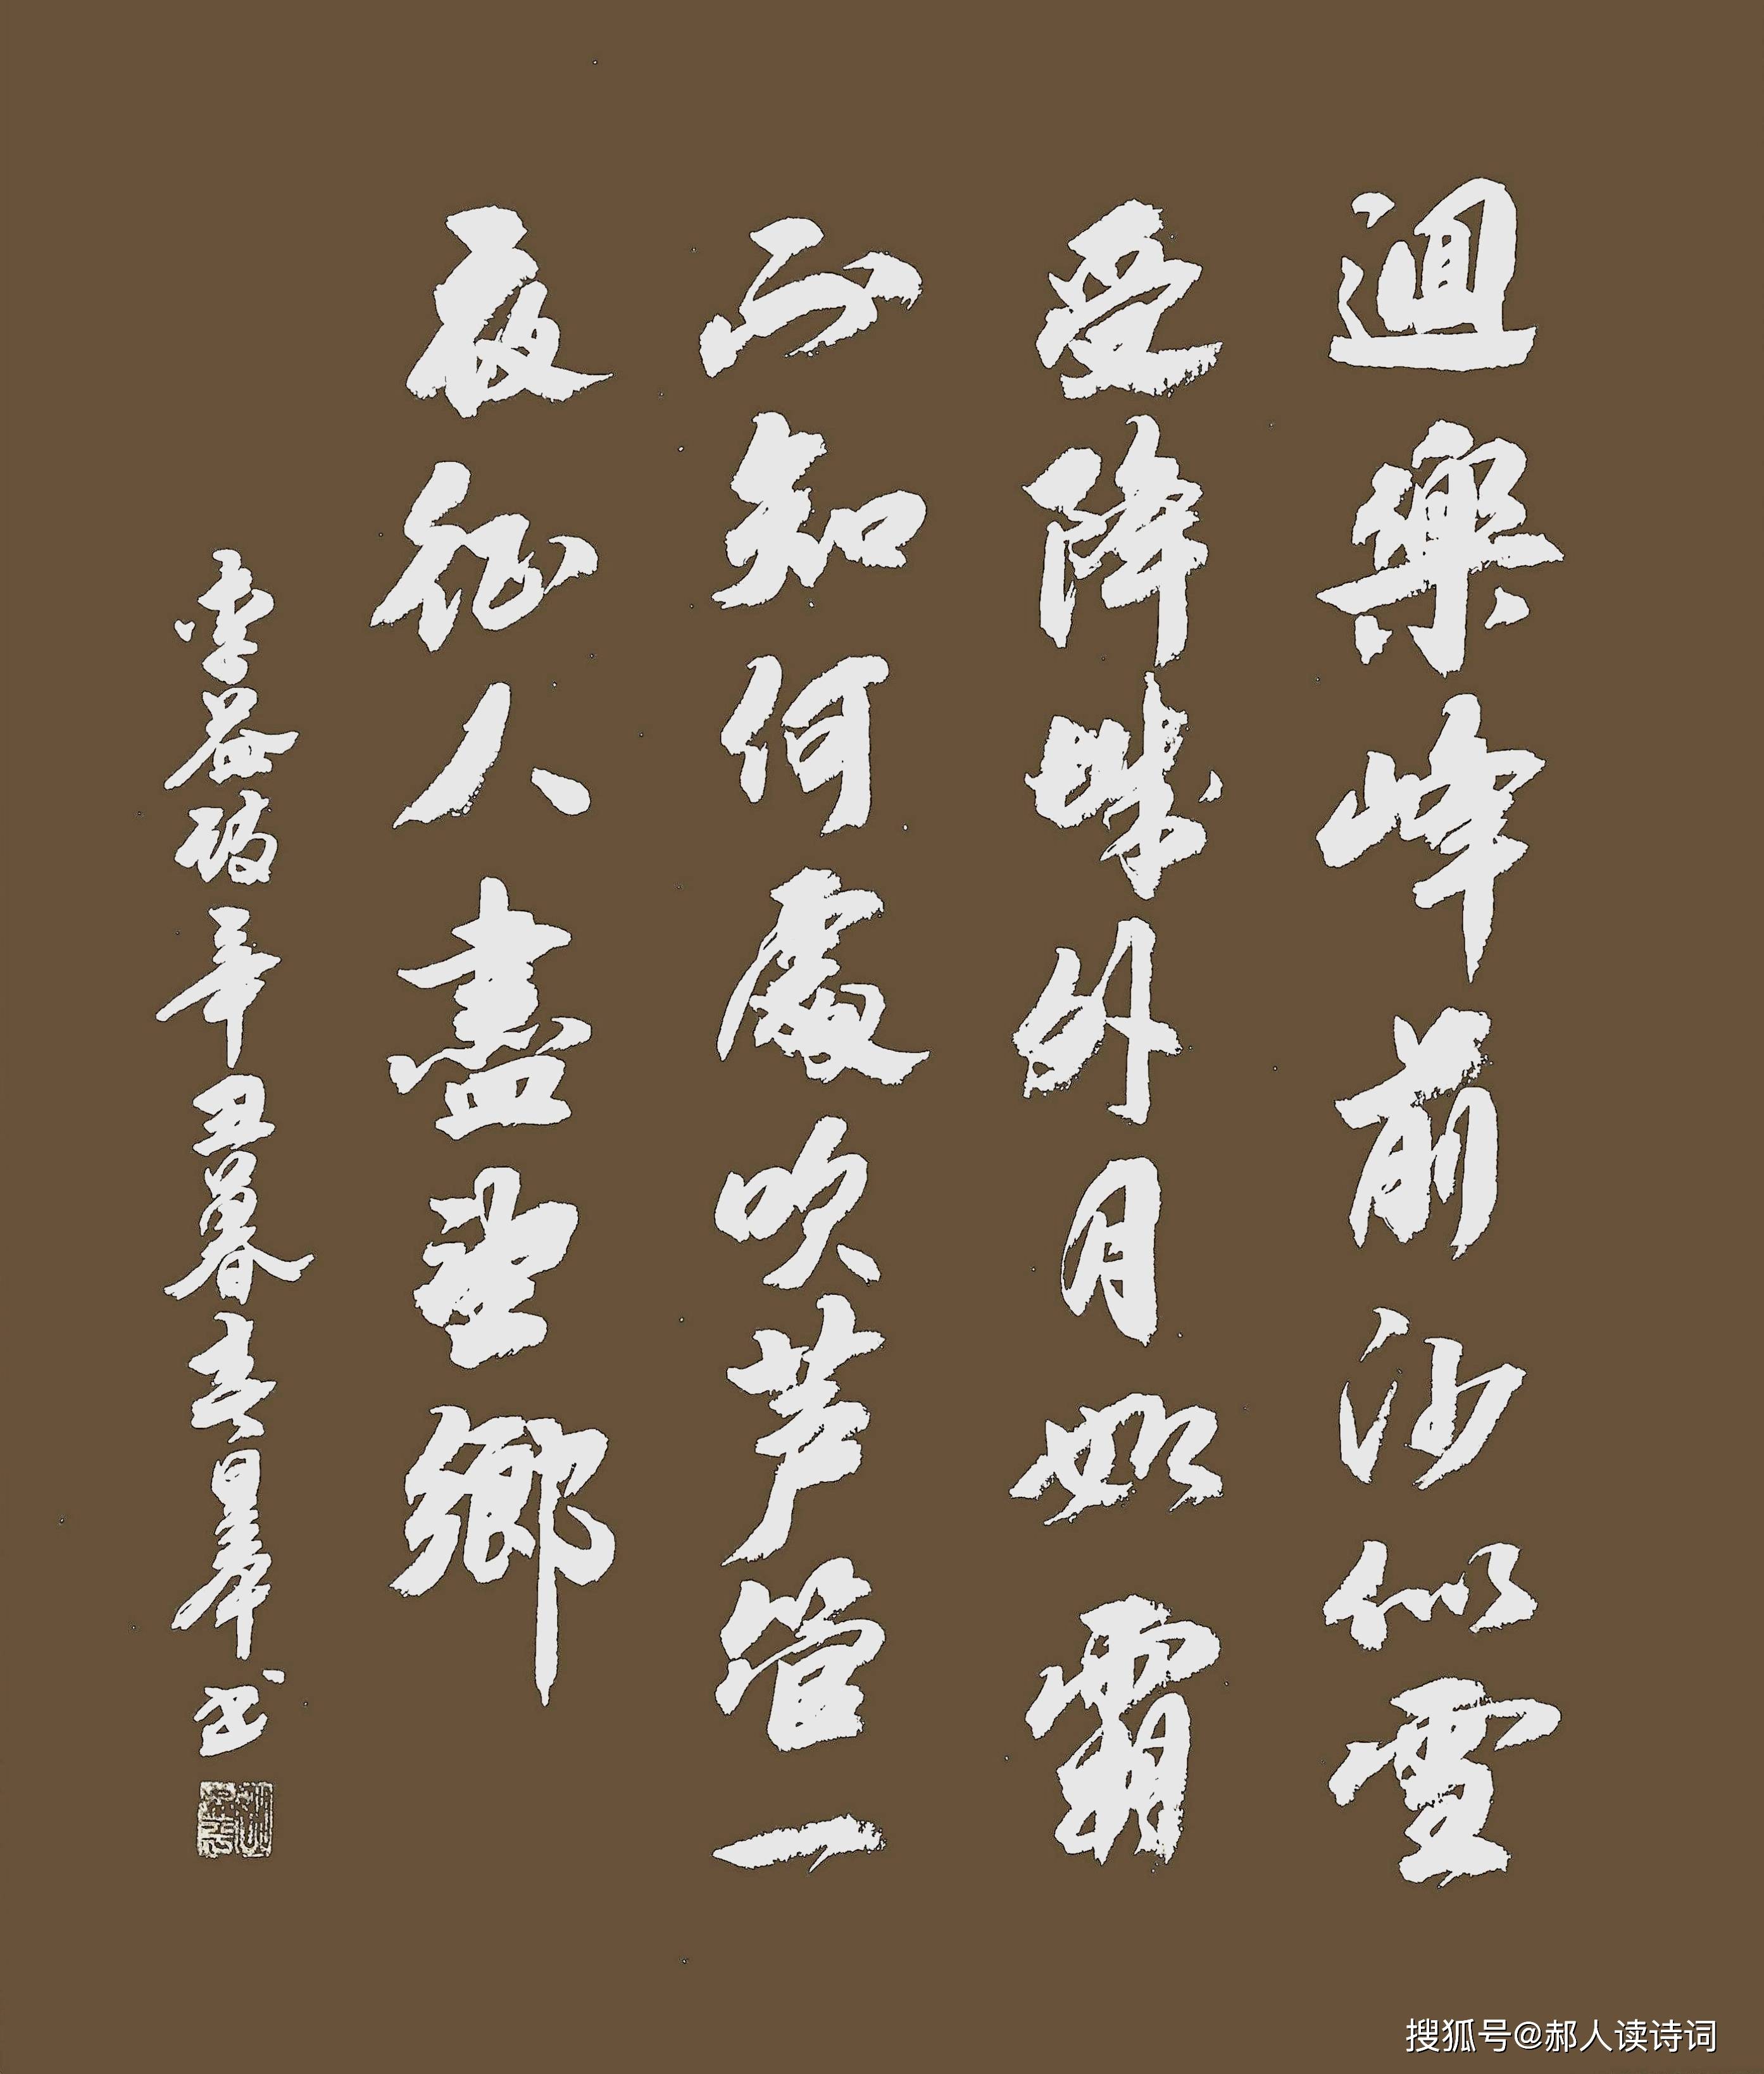 迴樂峰前沙似雪
受降城外月如霜
不知何處吹芦管一
夜征人盡望鄉
李益诗辛丑暮春昊峯书
搜狐号@郝人读诗词